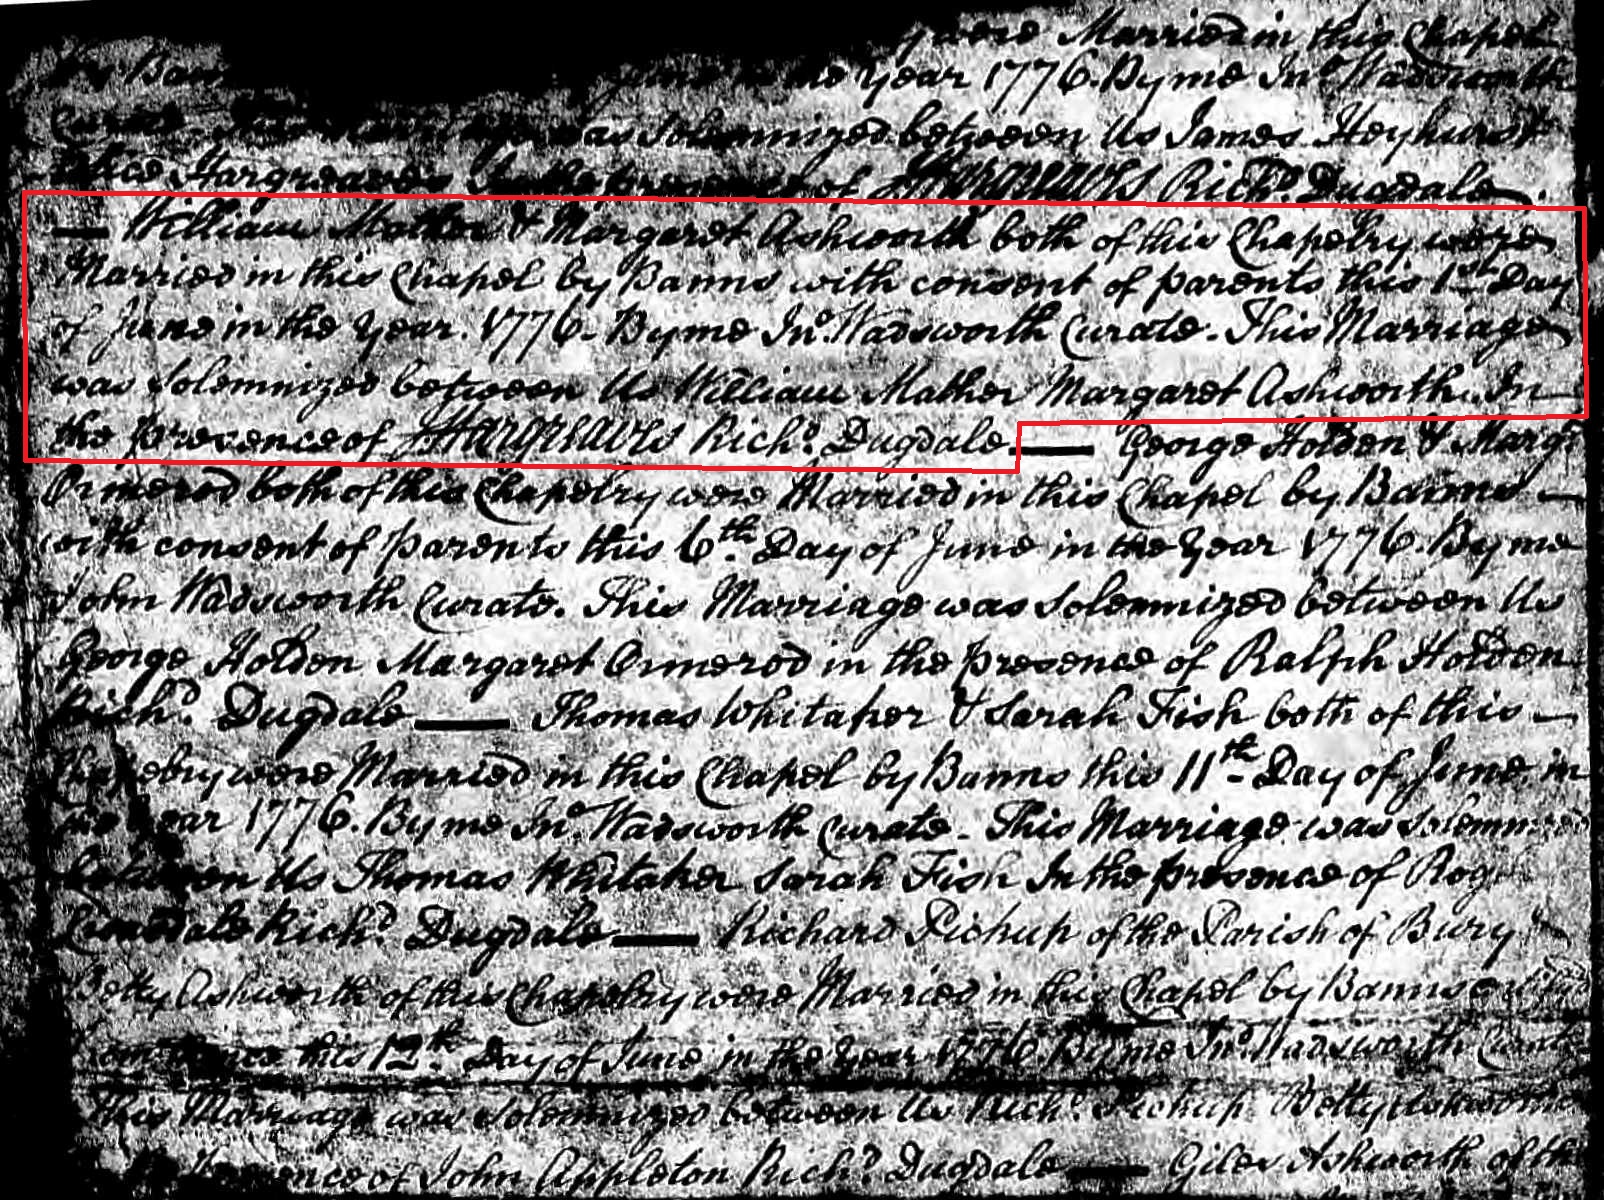 were Married in this Chapel
by Bann Year 1776. By me Jnº. Wadsworth
Curate. was Solemnized between Us James Heyhurst
Alice Hargreaves In the presence of Hargreaves Richd. Dugdale.
— William Mather & Margaret Ashworth both of this Chapelry were
Married in this Chapel by Banns with consent of parents this 1st Day
of June in the Year. 1776. By me Jnº. Wadsworth Curate. This Marriage
was Solemnized between Us William Mather Margaret Ashworth. In
the presence of Hargreaves Richd. Dugdale — George Holden & Margt
Ormerod both of this Chapelry were Married in this Chapel by Banns —
with consent of parents this 6th. Day of June in the Year 1776. By me
John Wadsworth Curate. This Marriage was Solemnized between Us
George Holden Margaret Ormerod in the presence of Ralph Holden
Richd. Dugdale — Thomas Whitaker & Sarah Fish both of this —
Chapelry were Married in this Chapel by Banns this 11th Day of June in
the Year 1776. By me Jnº. Wadsworth Curate. This Marriage was Solemnized
between Us Thomas Whitaker Sarah Fish In the presence of
Richd. Dugdale — Richard Pickup of the Parish of Bury
Betty Ashworth of this Chapelry were Married in this Chapel by Banns
this 12th. Day of June in the Year 1776. By me Jnº. Wadsworth Curate
This Marriage was Solemnized between Us Richd. Pickup Betty Ashworth
presence of John Appleton Richd. Dugdale — Giles Ashworth of the